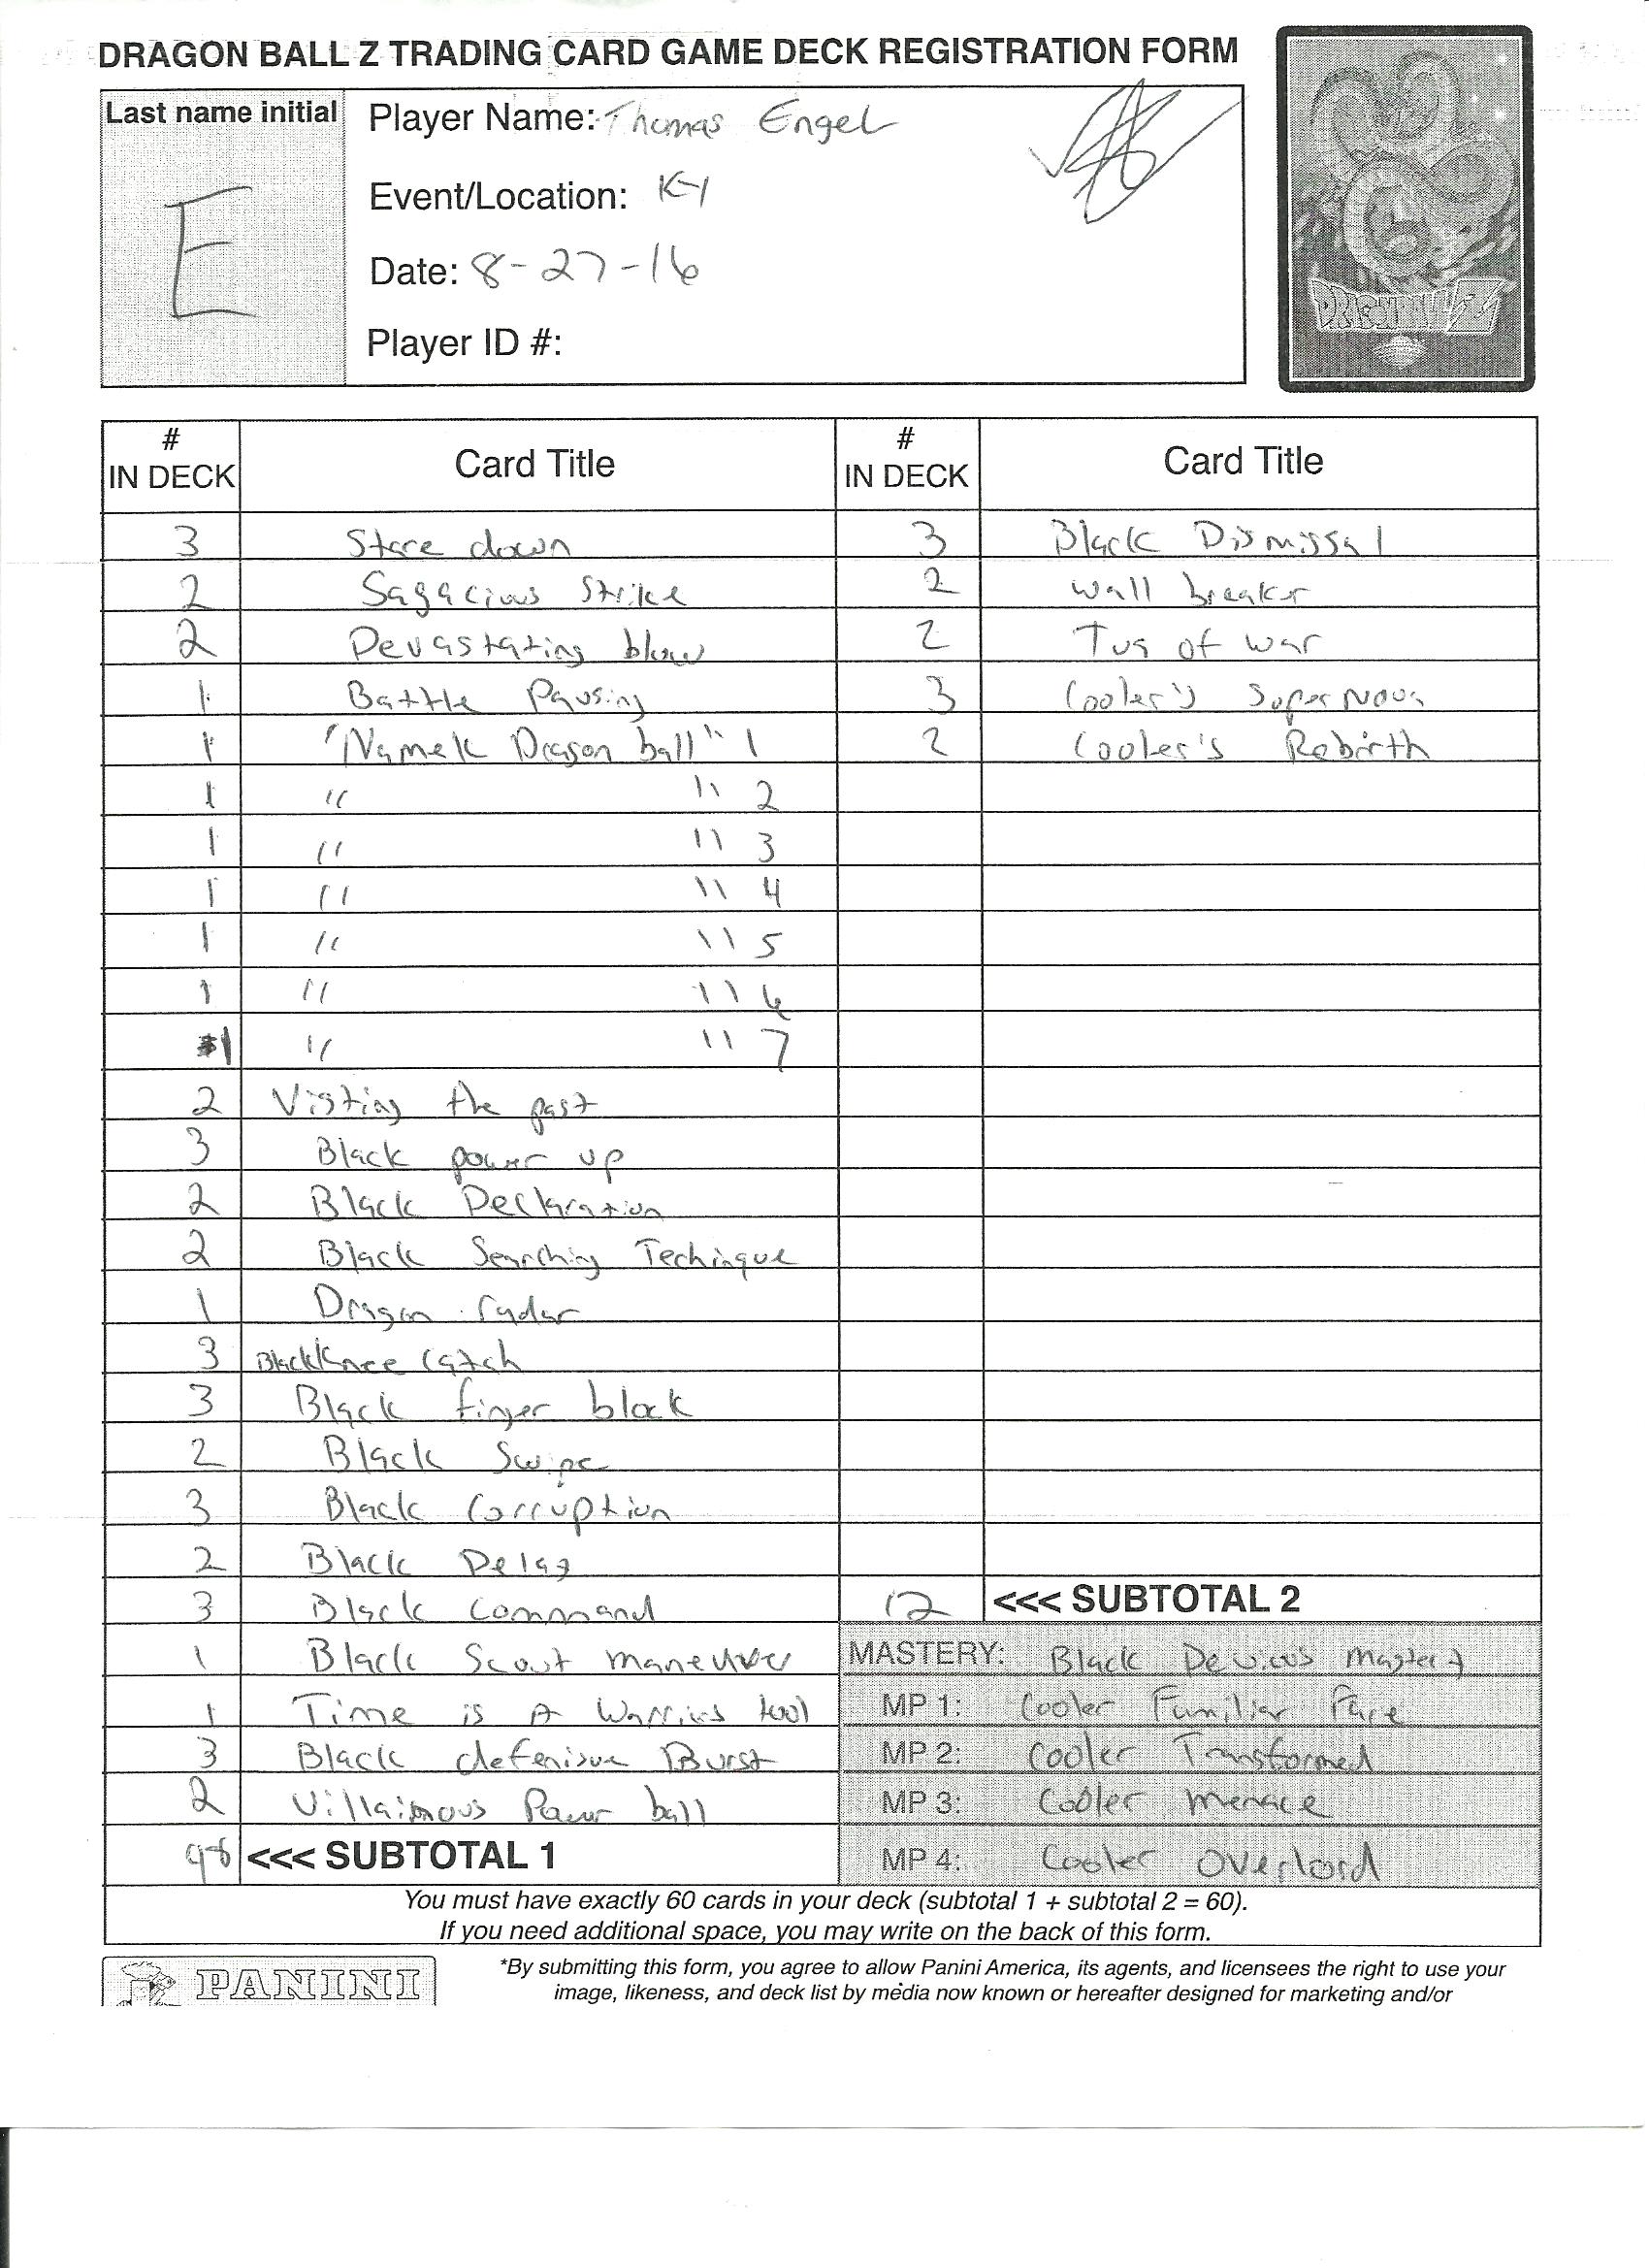 DRAGON BALL Z TRADING CARD GAME DECK REGISTRATION FORM
Last name initial
E
Player Name: Thomas Engel
Event/Location: KY
Date: 8-27-16
Player ID #:
DRAGONBALL Z
# IN DECK Card Title # IN DECK Card Title
3 Stare down 3 Black Dismissal
2 Sagacious Strike 2 wall breaker
2 Devastating blow 2 Tug of war
1 Battle Pausing 3 Cooler's Supernova
1 "Namek Dragon ball" 1 2 Cooler's Rebirth
1 " " 2
1 " " 3
1 " " 4
1 " " 5
1 " " 6
1 " " 7
2 Visting the past
3 Black power up
2 Black Declaration
2 Black Searching Techinque
1 Dragon radar
3 Black Knee Catch
3 Black finger block
2 Black Swipe
3 Black Corruption
2 Black Delay
3 Black Command 12 <<< SUBTOTAL 2
1 Black Scout maneuver MASTERY: Black Devious Mastery
1 Time is A Warriors tool MP 1: Cooler Familiar Face
3 Black defenisve Burst MP 2: Cooler Transformed
2 Villainous Power ball MP 3: Cooler Menace
48 <<< SUBTOTAL 1 MP 4: Cooler Overlord
You must have exactly 60 cards in your deck (subtotal 1 + subtotal 2 = 60).
If you need additional space, you may write on the back of this form.
PANINI
*By submitting this form, you agree to allow Panini America, its agents, and licensees the right to use your
image, likeness, and deck list by media now known or hereafter designed for marketing and/or